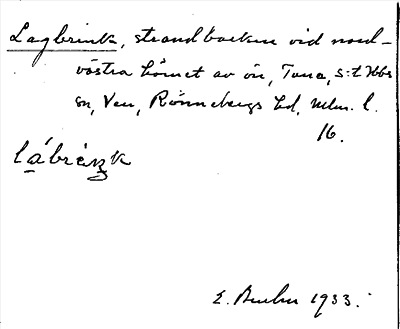 Lagbrink, strandbacken vid nord-
västra hörnet av ön, Tuna, S:t Ibbs
sn, Ven, Rönnebergs hd, Mlm. l.
16.
lábrènk
E. 1933.